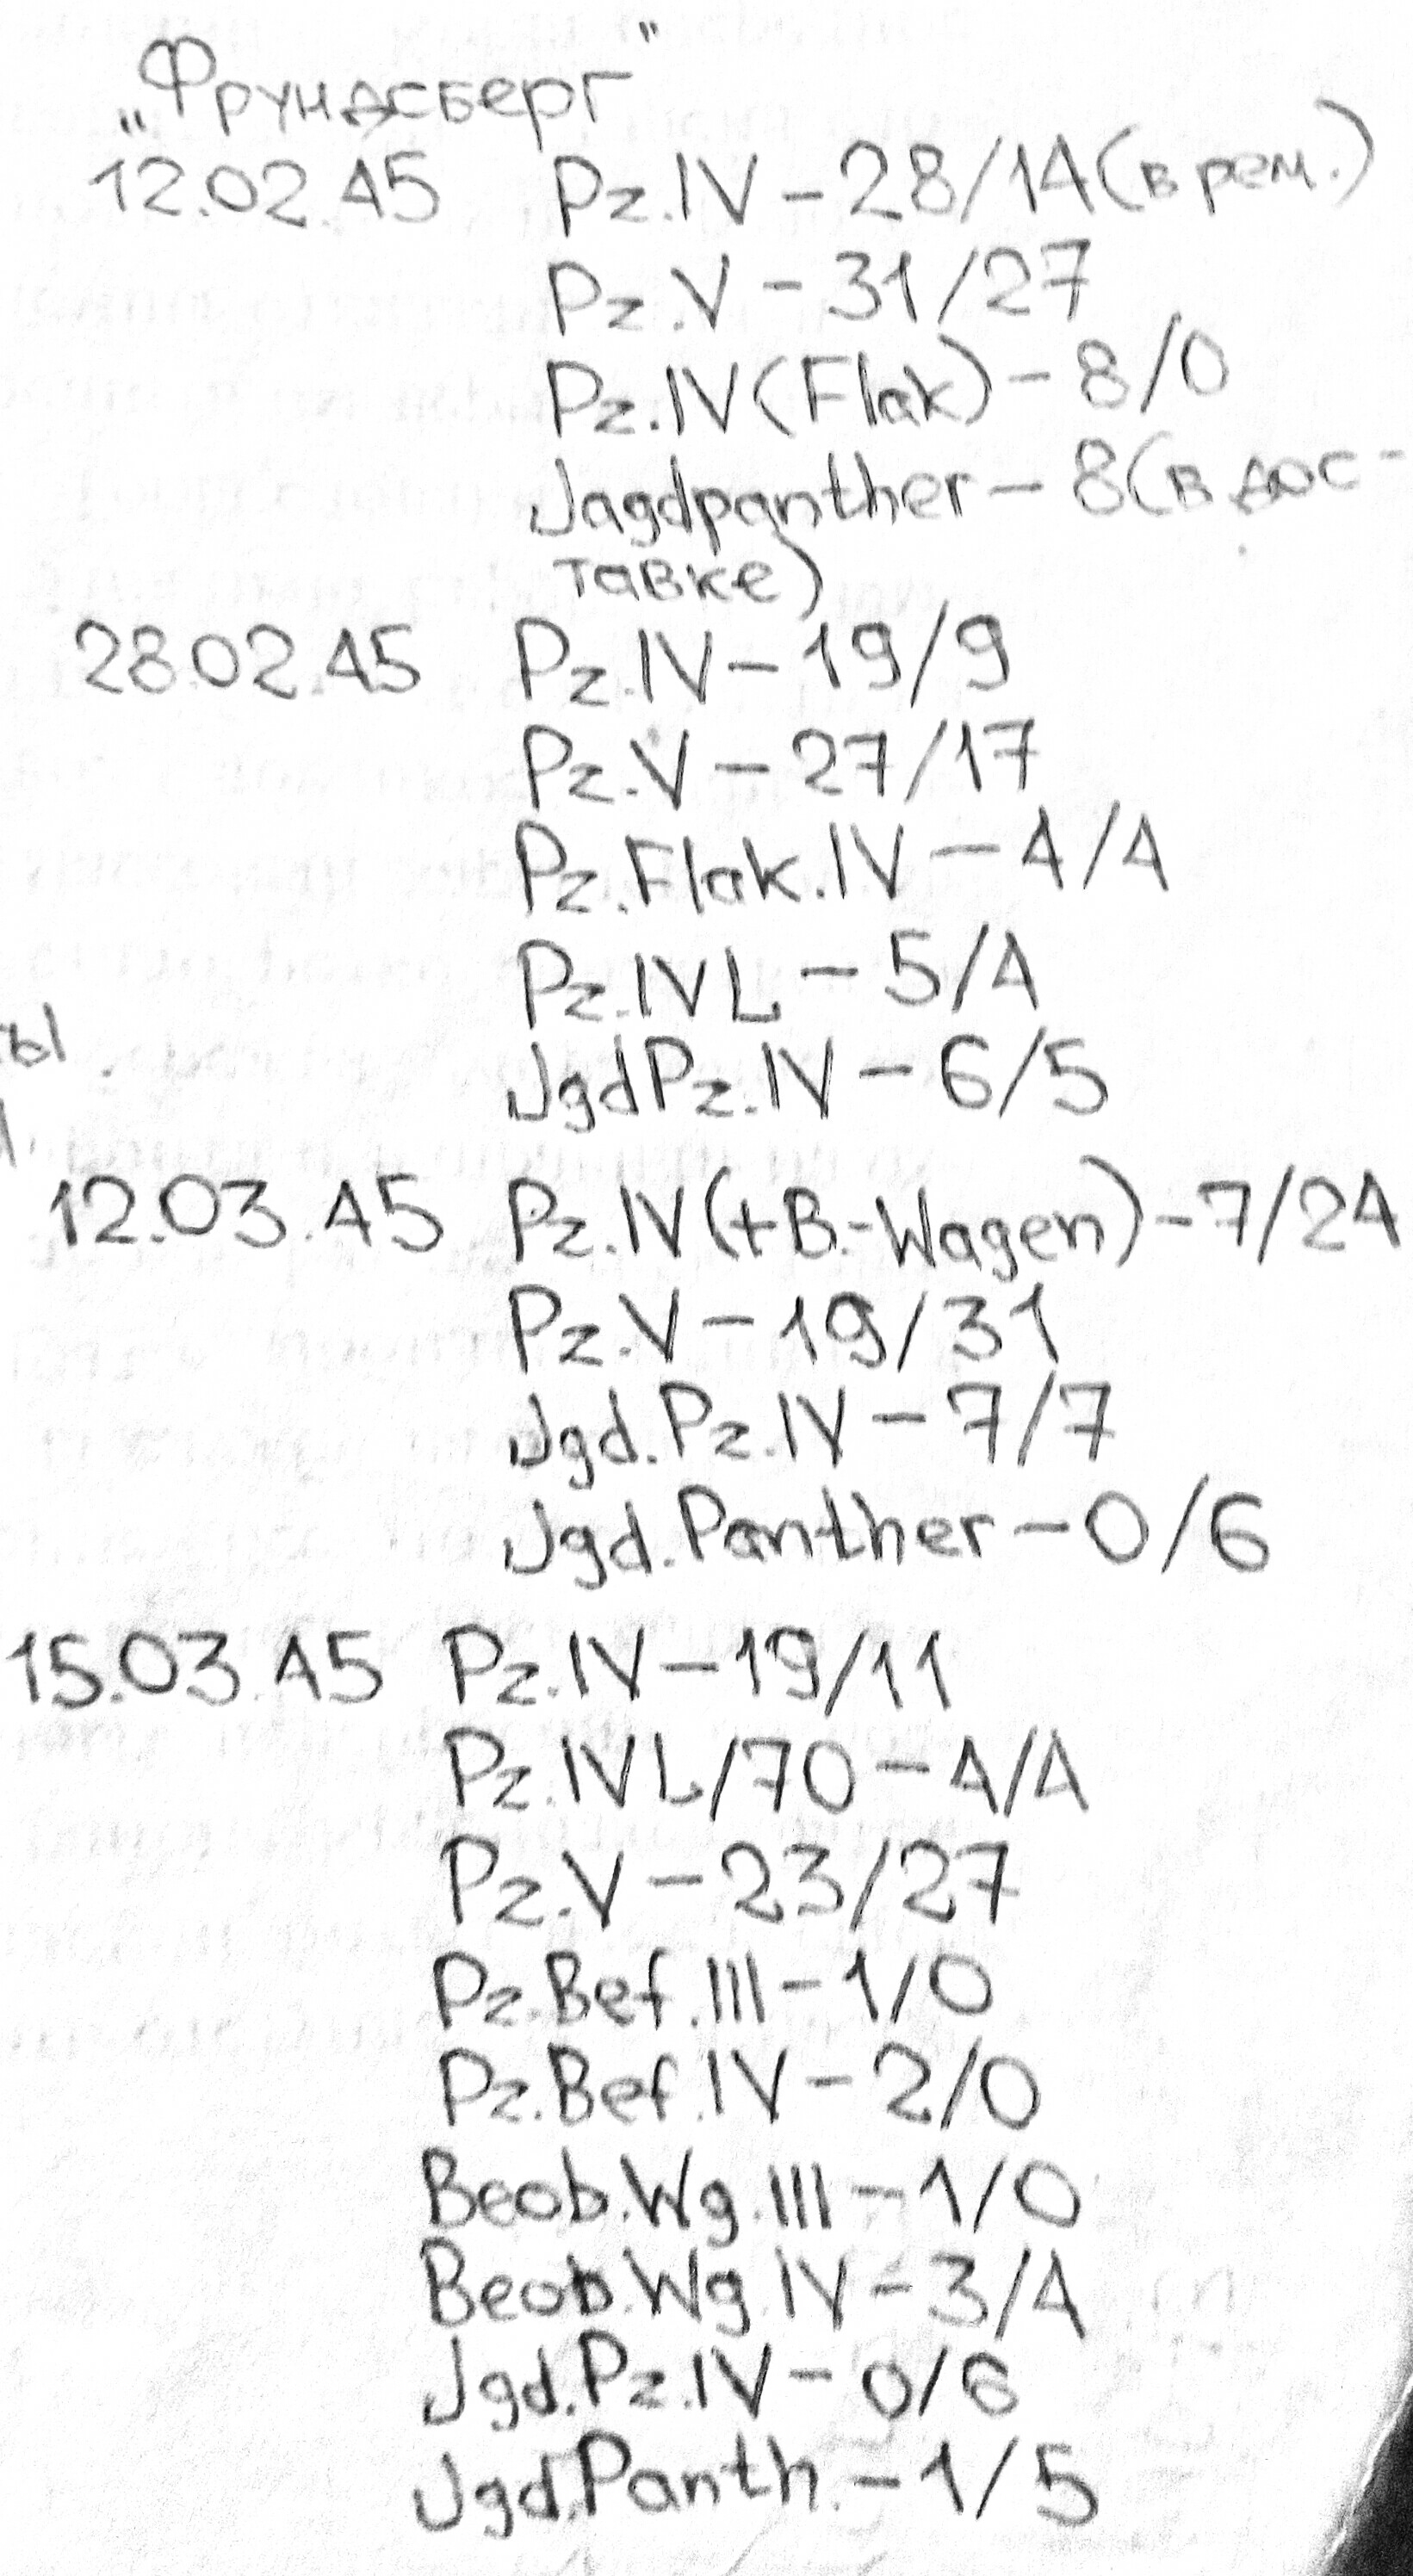 „Фрундсберг"
12.02.45 Pz.IV – 28/14 (в рем.)
Pz.V – 31/27
Pz.IV (Flak) – 8/0
Jagdpanther – 8 (в дос-
тавке)
28.02.45 Pz.IV – 19/9
Pz.V – 27/17
Pz.Flak.IV – 4/4
Pz.IVL – 5/4
ы
JgdPz.IV – 6/5
12.03.45 Pz.IV (+B.-Wagen) – 7/24
Pz.V – 19/31
Jgd.Pz.IV – 7/7
Jgd.Panther – 0/6
15.03.45 Pz.IV – 19/11
Pz.IVL/70 – 4/4
Pz.V – 23/27
Pz.Bef.III – 1/0
Pz.Bef.IV – 2/0
Beob.Wg.III – 1/0
Beob.Wg.IV – 3/4
Jgd.Pz.IV – 0/6
Jgd.Panth. – 1/5